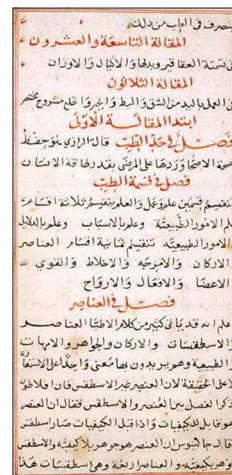 ينصرف في الطب من ذلك
المقالة التاسعة والعشرون
في تسمية العقاقير وبدلها والاكيال والاوزان
المقالة الثلاثون
في العمل باليد من الشق والبط والجبر والخلع مشروح مختصر
ابتدا المقالة الاولى
فصل في حد الطب قال الرازي هو حفظ
صحة الاصحا وردها على المرضى بقدر طاقة الانسان
فصل في قسمة الطب
ينقسم قسمين علم وعمل والعلم ينقسم ثلاثة اقسام
علم الامور الطبيعية وعلم بالاسباب وعلم بالدلايل
والامور الطبيعيه تنقسم ثمانية اقسام العناصر
والاركان والامزجه والاخلاط والقوى
والاعضا والافعال والارواح
فصل في العناصر
اعلم انه قد ياتي كثير من كلام الاطبا العناصر
والاسطقسات والاركان والجواهر والامهات
الطبيعية وهم يريدون بها معنى واحدا على
على الحقيقة لان العنصر غير الاسطقس فان افلاطن
ذكر الفصل بين العنصر والاسطقس فقال ان العنصر
هو قابل للكيفيات واذا قبل الكيفيات صار اسطقس
قال جالينوس ان العنصر هو جوهر بلا كيفية والاسطقس
جوهر بكيفية العناصر اربعة وهي اسطقسات هذا